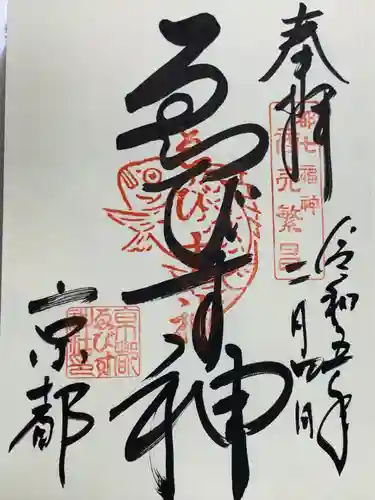 奉拝
都七福神
商売繁昌
令和五年
二月四日
ゑびす神
ゑびす神
京都
京都
ゑびす
神社